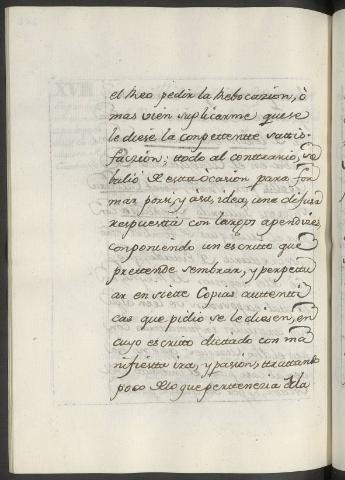 el Reo pedir la Rebocazion, ò
mas vien suplicarme que se
le diese la conpettentte sattis-
faczion; ttodo al conttrario, se
balió de esta òcasion para for
mar por si, y à su idea, una difusa
respuestta con largos apendizes,
conponiendo un escritto que
prettende sembrar, y perpettu
ar en siette Copias auttentti
cas que pidio se le diesen, en
cuyo escritto dictado con ma
nifiestta ira, y pasion, ttrattando
poco de lo que perttenezia de la